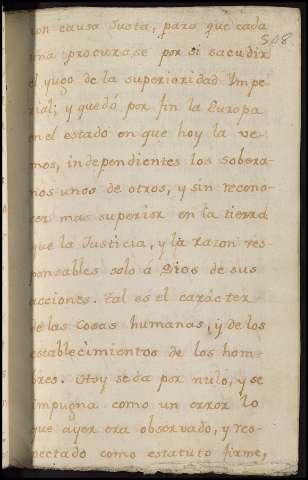 con causa Justa, para que cada
508
una procurase por si sacudir
el yugo de la superioridad Impe-
rial; y quedó por fin la Europa
en el estado en que hoy la ve-
mos, independientes los sobera-
nos unos de otros, y sin recono-
cer mas superior en la tierra
que la Justicia, y la razon res-
ponsables solo á Dios de sus
acciones. Tal es el carácter
de las Cosas humanas, y de los
establecimientos de los hom-
bres. Hoy se da por nulo, y se
impugna como un error lo
que ayer era observado, y res-
pectado como estatuto firme,